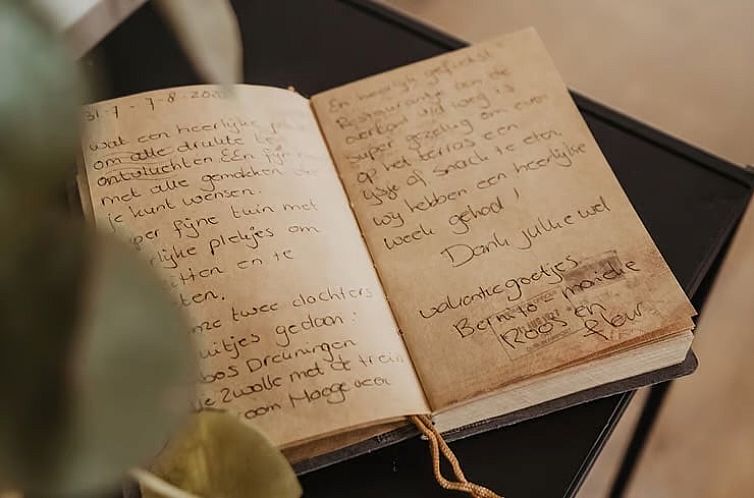 31-7 - 7-8-20
wat een heerlijke
om alle drukte te
ontvluchten. Een fijn
met alle gemakken die
je kunt wensen.
per fijne tuin met
lijke plekjes om
zitten en te
ten.
nze twee dochters
uitjes gedaan:
bos Dreuningen
je Zwolle met de trein
oom Hoogeveen
En heerlijk gefietst
Restaurantje aan de
overkant vd weg is
super gezellig om even
op het terras een
ijsje of snack te eten.
wij hebben een heerlijke
week gehad!
Dank jullie wel
vakantiegroetjes
marieke
Roos en
fleur